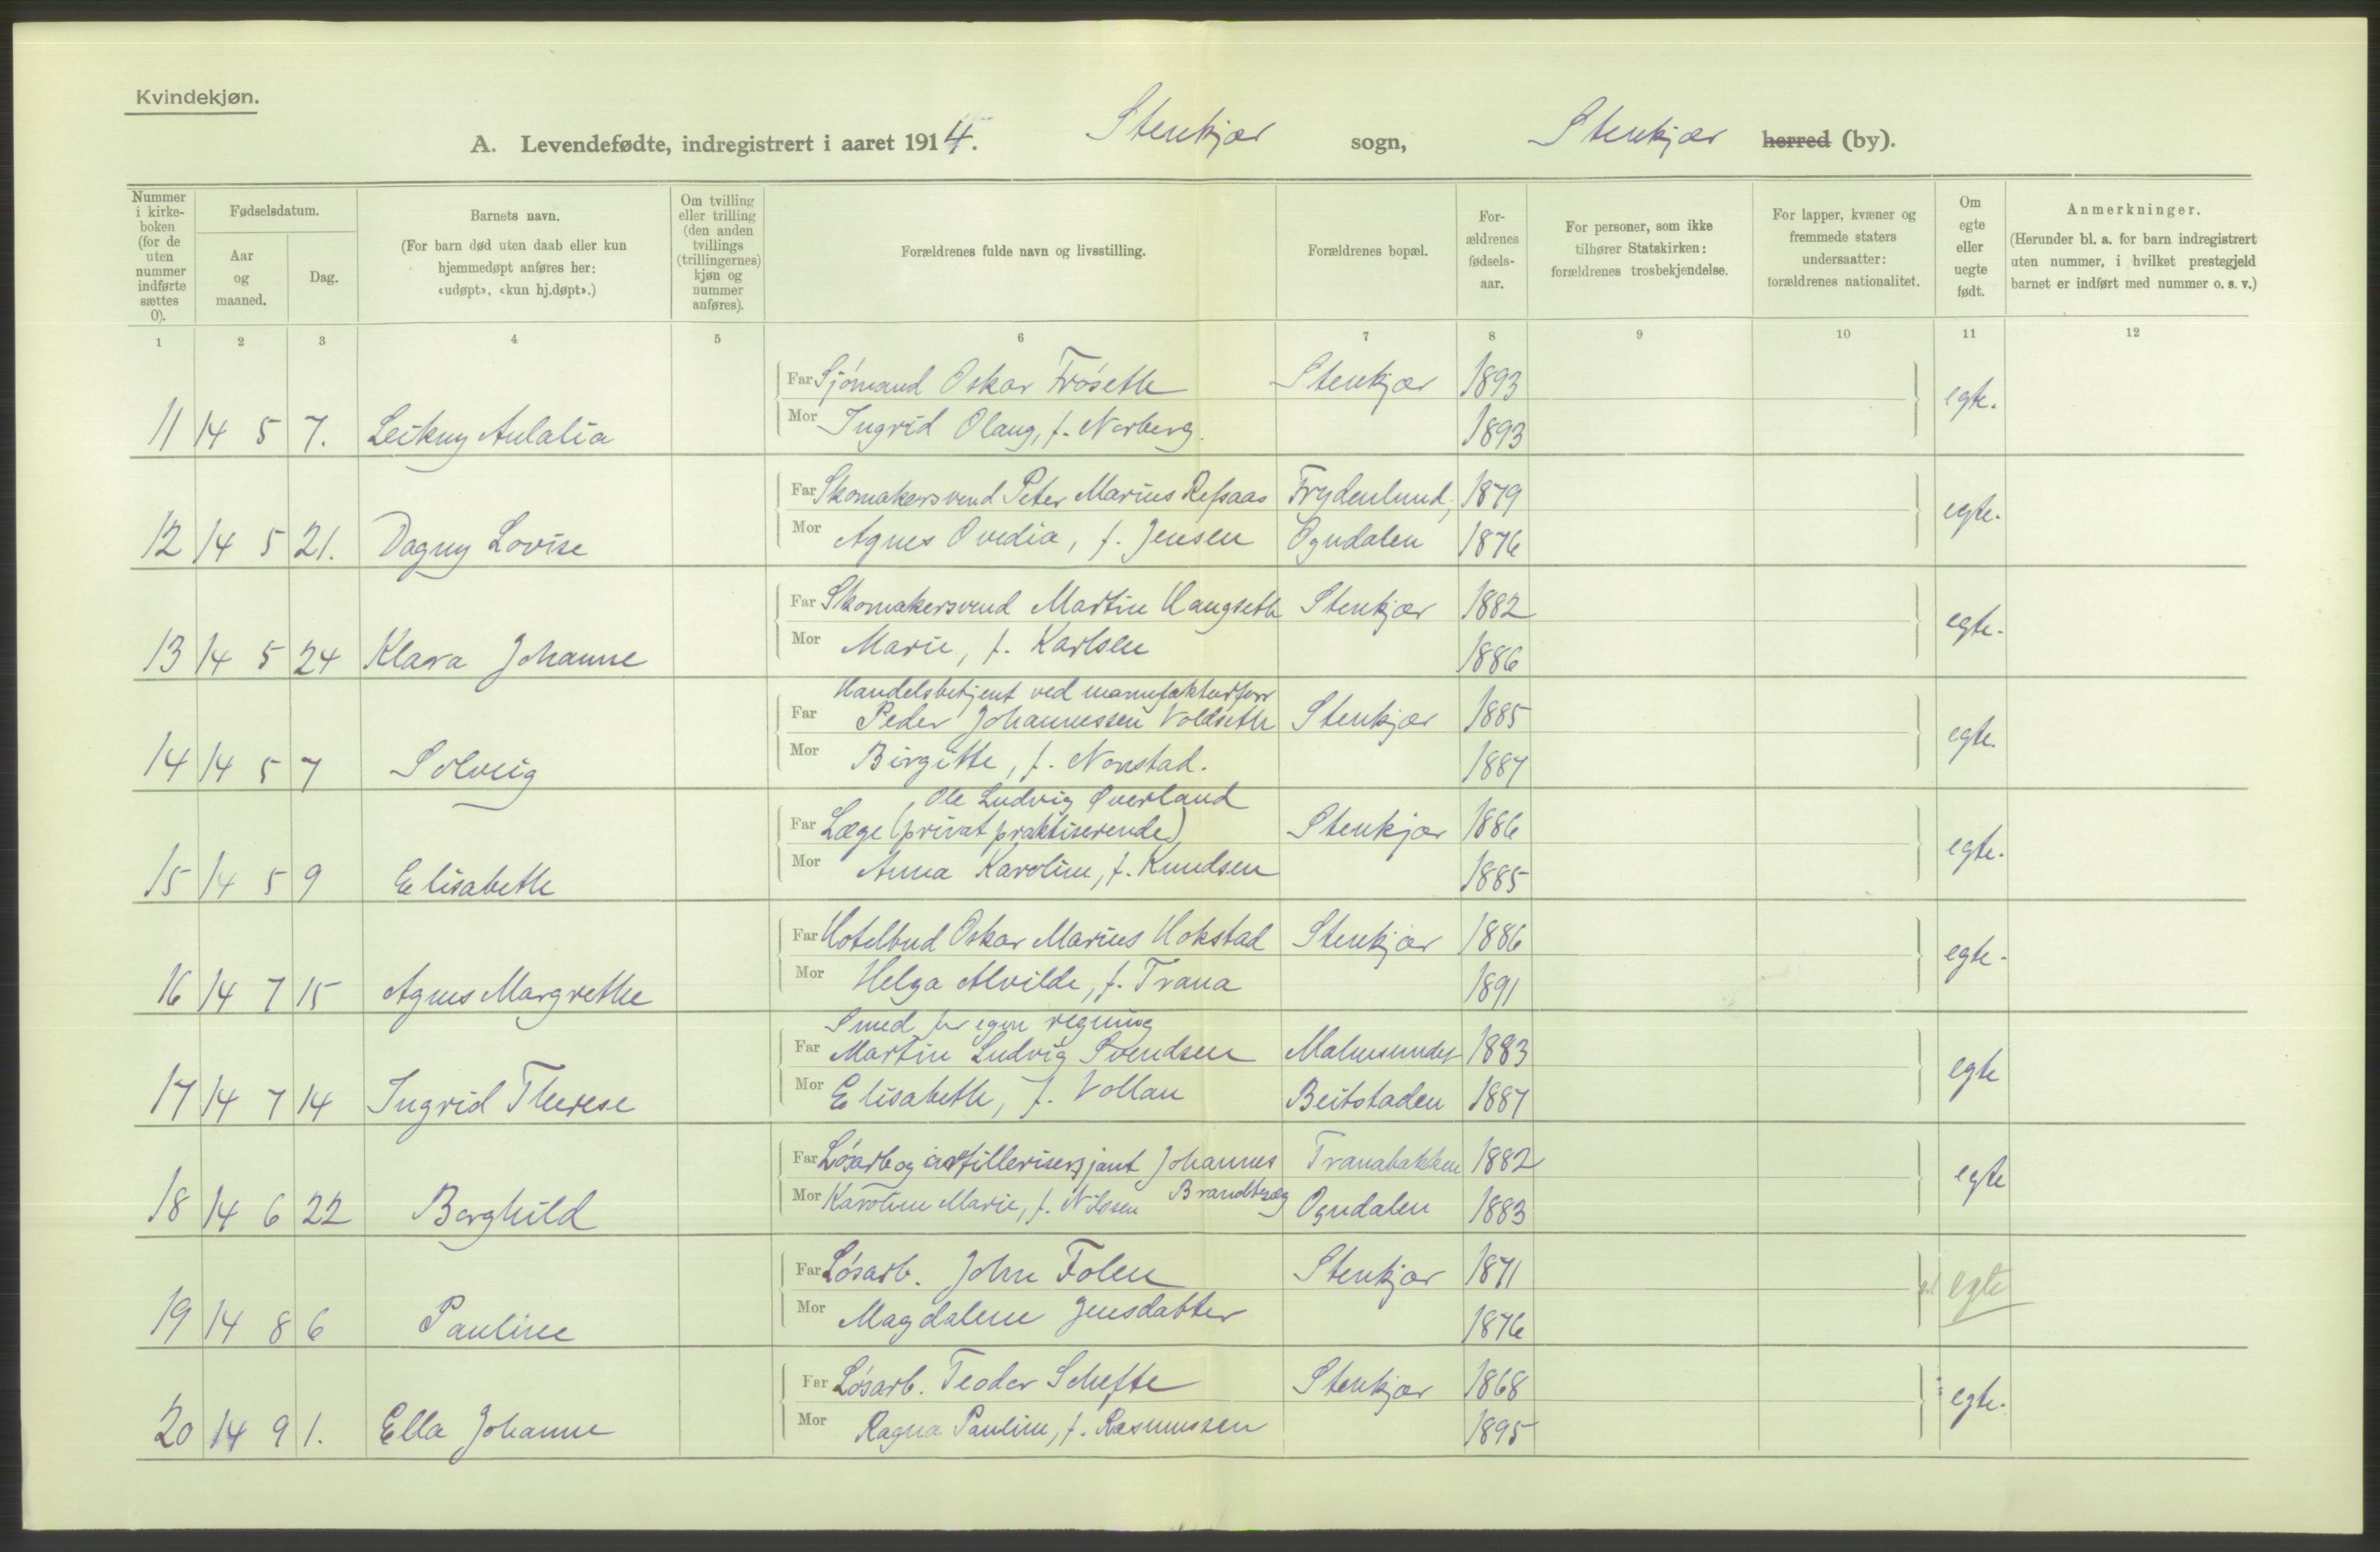 Kvindekjøn.
A. Levendefødte, indregistrert i aaret 1914. Stenkjær sogn, Stenkjær herred (by).
Nummer i kirke- boken (for de uten nummer indførte sættes 0).
Fødselsdatum.
Aar og maaned.
Dag.
Barnets navn.
(For barn død uten daab eller kun hjemmedøpt anføres her: «udøpt», «kun hj.døpt».)
Om tvilling eller trilling (den anden tvillings (trillingernes) kjøn og nummer anføres).
Forældrenes fulde navn og livsstilling.
Forældrenes bopæl.
For- ældrenes fødsels- aar.
For personer, som ikke tilhører Statskirken: forældrenes trosbekjendelse.
For lapper, kvæner og fremmede staters undersaatter: forældrenes nationalitet.
Om egte eller uegte født.
Anmerkninger.
(Herunder bl. a. for barn indregistrert uten nummer, i hvilket prestegjeld barnet er indført med nummer o. s. v.)
1 2 3 4 5 6 7 8 9 10 11 12
Far Sjømand Oskar Frøseth Stenkjær 1893
11 14 5 7. Leikny Aulalia Mor Ingrid Olaug, f. Norberg. 1893 egte.
Far Skomakersvend Peter Marius Refsaas Frydenlund, 1879
12 14 5 21. Dagny Lovise Mor Agnes Ovedia, f. Jensen Ogndalen 1876 egte.
Far Skomakersvend Martin Haugseth Stenkjær 1882
13 14 5 24 Klara Johanne Mor Marie, f. Karlsen 1886 egte.
Handelsbetjent ved manufakturforr
Far Peder Johannessen Voldseth Stenkjær 1885
14 14 5 7 Solveig Mor Birgitte, f. Nonstad. 1887 egte.
Ole Ludvig Øverland
Far Læge (privat praktiserende) Stenkjær 1886
15 14 5 9 Elisabeth Mor Anna Karoline, f. Knudsen 1885 egte.
Far Hotelbud Oskar Marius Hokstad Stenkjær 1886
16 14 7 15 Agnes Margrethe Mor Helga Alvilde, f. Trana 1891 egte.
Smed for egen regning
Far Martin Ludvig Svendsen Malmsundet 1883
17 14 7 14 Ingrid Therese Mor Elisabeth, f. Vollan Beitstaden 1887 egte
Far Løsarb og artillerisersjant Johannes Tranabakken 1882
Brandtzæg
18 14 6 22 Borghild Mor Karoline Marie, f. Nilsen Ogndalen 1883 egte
Far Løsarb. John Folen Stenkjær 1871
19 14 8 6 Pauline Mor Magdalene Jensdatter 1876 egte
Far Løsarb. Teodor Schefte Stenkjær 1868
20 14 9 1. Ella Johanne Mor Ragna Pauline, f. Rasmussen 1895 egte.